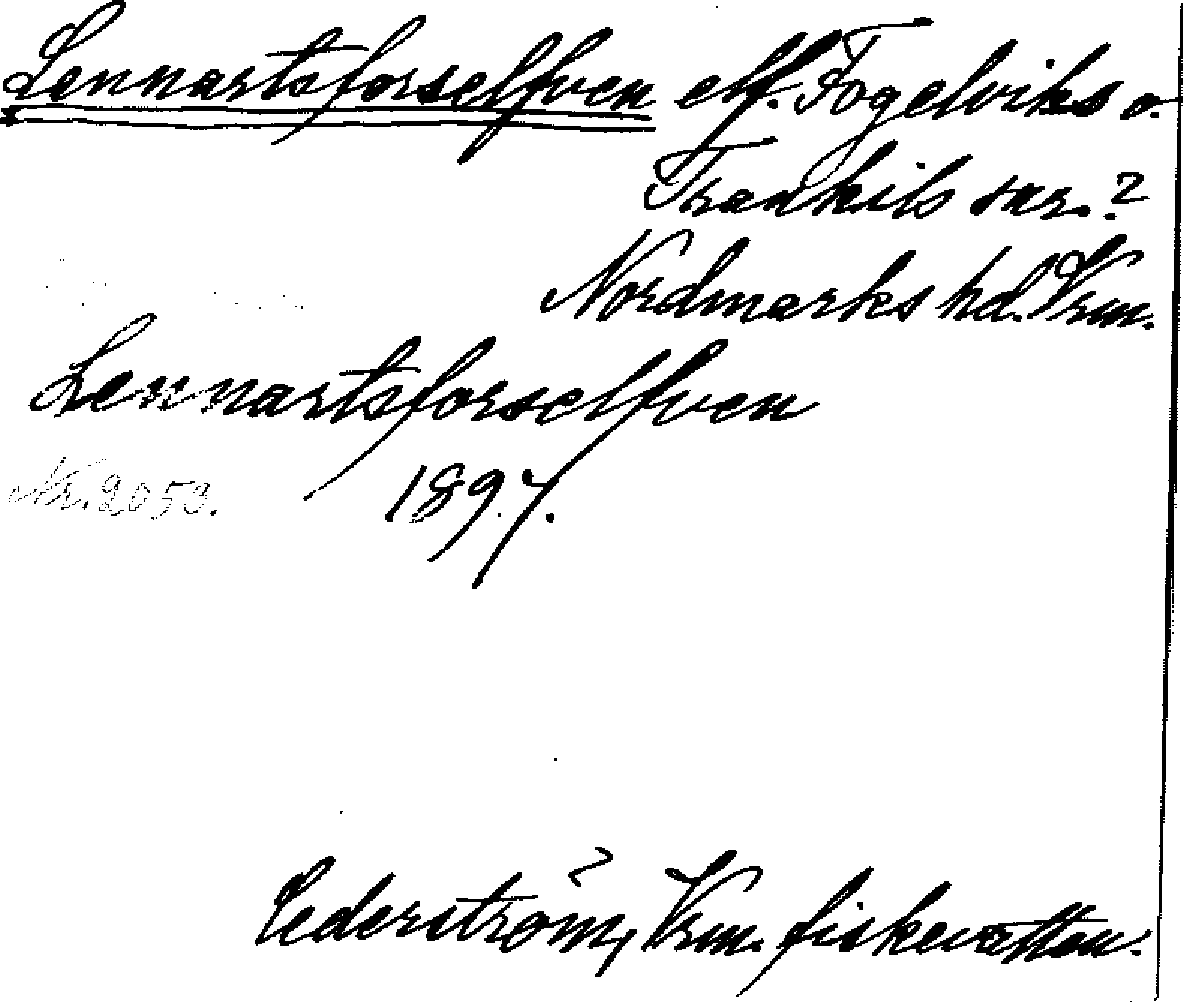 Lennartsforselfven elf. Fogelviks o.
Trankils snr.?
Nordmarks hd. Vrm.
Lennartsforselfven
Nr. 2053. 1897.
Cederström, Vrm. fiskevatten.